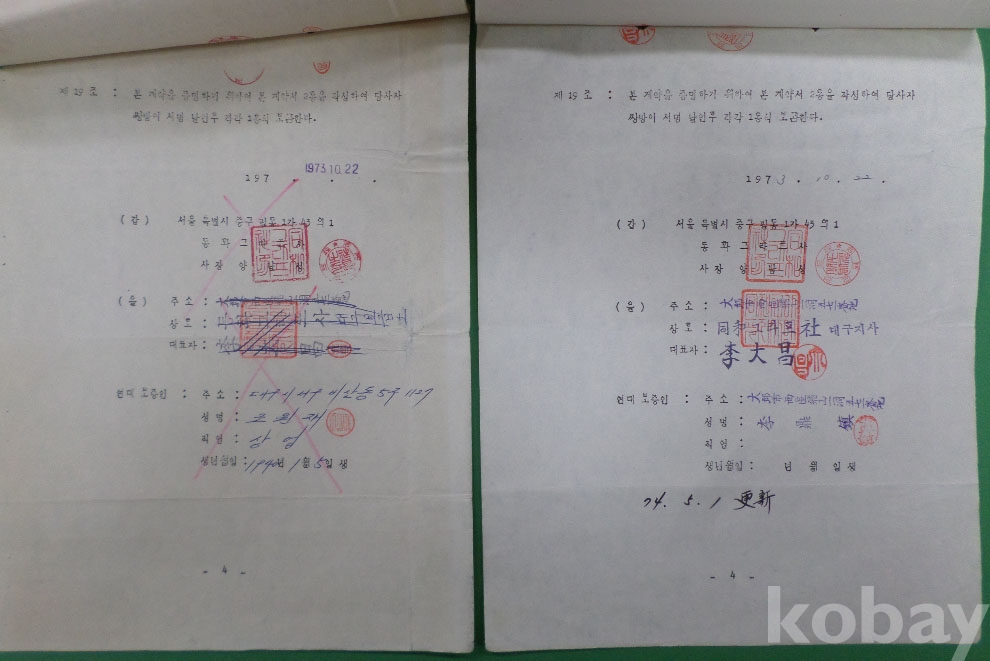 제 19 조 : 본 계약을 증명하기 위하여 본 계약서 2통을 작성하여 당사자
쌍방이 서명 날인후 각각 1통식 보관한다.
197 . . .
1973.10.22
(갑) 서울 특별시 중구 필동 1가 43 의 1
동 화 그 라 프 사
사 장 양
(을) 주 소 :
상 호 :
대표자 :
연대 보증인 : 주 소 : 대구시 서구 비산동 5구 1127
성 명 :
직 업 : 상 업
생년월일 : 1940년 1월 5일 생
- 4 -
제 19 조 : 본 계약을 증명하기 위하여 본 계약서 2통을 작성하여 당사자
쌍방이 서명 날인후 각각 1통식 보관한다.
1973 . 10 . 22 .
(갑) 서울 특별시 중구 필동 1가 43 의 1
동 화 그 라 프 사
사 장 양
(을) 주 소 :
상 호 : 同和그라프社 대구지사
대표자 : 李大昌
연대 보증인 : 주 소 :
성 명 : 李 鼎 鎮
직 업 :
생년월일 : 년 월 일 생
74. 5. 1 更新
- 4 -
kobay